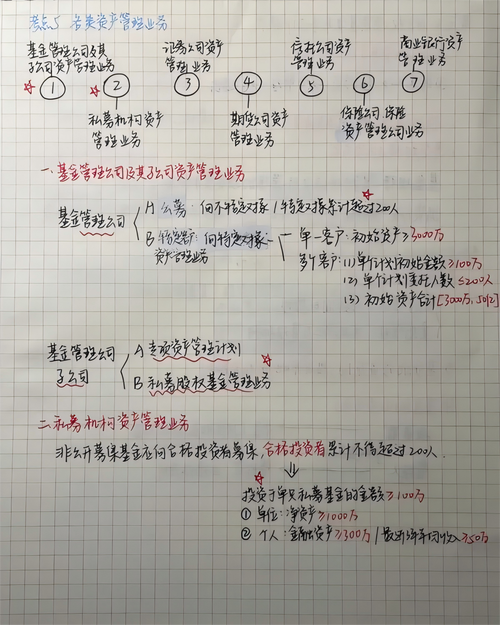 考点5 各类资产管理业务
基金管理公司及其 证券公司资产 信托公司资产 商业银行资产
子公司资产管理业务 管理业务 管理业务 管理业务
① ② ③ ④ ⑤ ⑥ ⑦
私募机构资产 期货公司资产 保险公司 保险
管理业务 管理业务 资产管理公司业务
一.基金管理公司及其子公司资产管理业务
基金管理公司
A 公募:向不特定对象/特定对象累计超过200人
B 特定客户 向特定对象
资产管理业务
单一客户:初始资产≥3000万
多个客户:(1)单个计划初始金额≥100万
(2)单个计划委托人数≤200人
(3)初始资产合计[3000万,50亿]
基金管理公司
子公司
A 专项资产管理计划
B 私募股权基金管理业务
二.私募机构资产管理业务
非公开募集基金应向合格投资者募集,合格投资者累计不得超过200人.
投资于单只私募基金的金额≥100万
① 单位:净资产≥1000万
② 个人:金融资产≥300万/最近3年年均收入≥50万